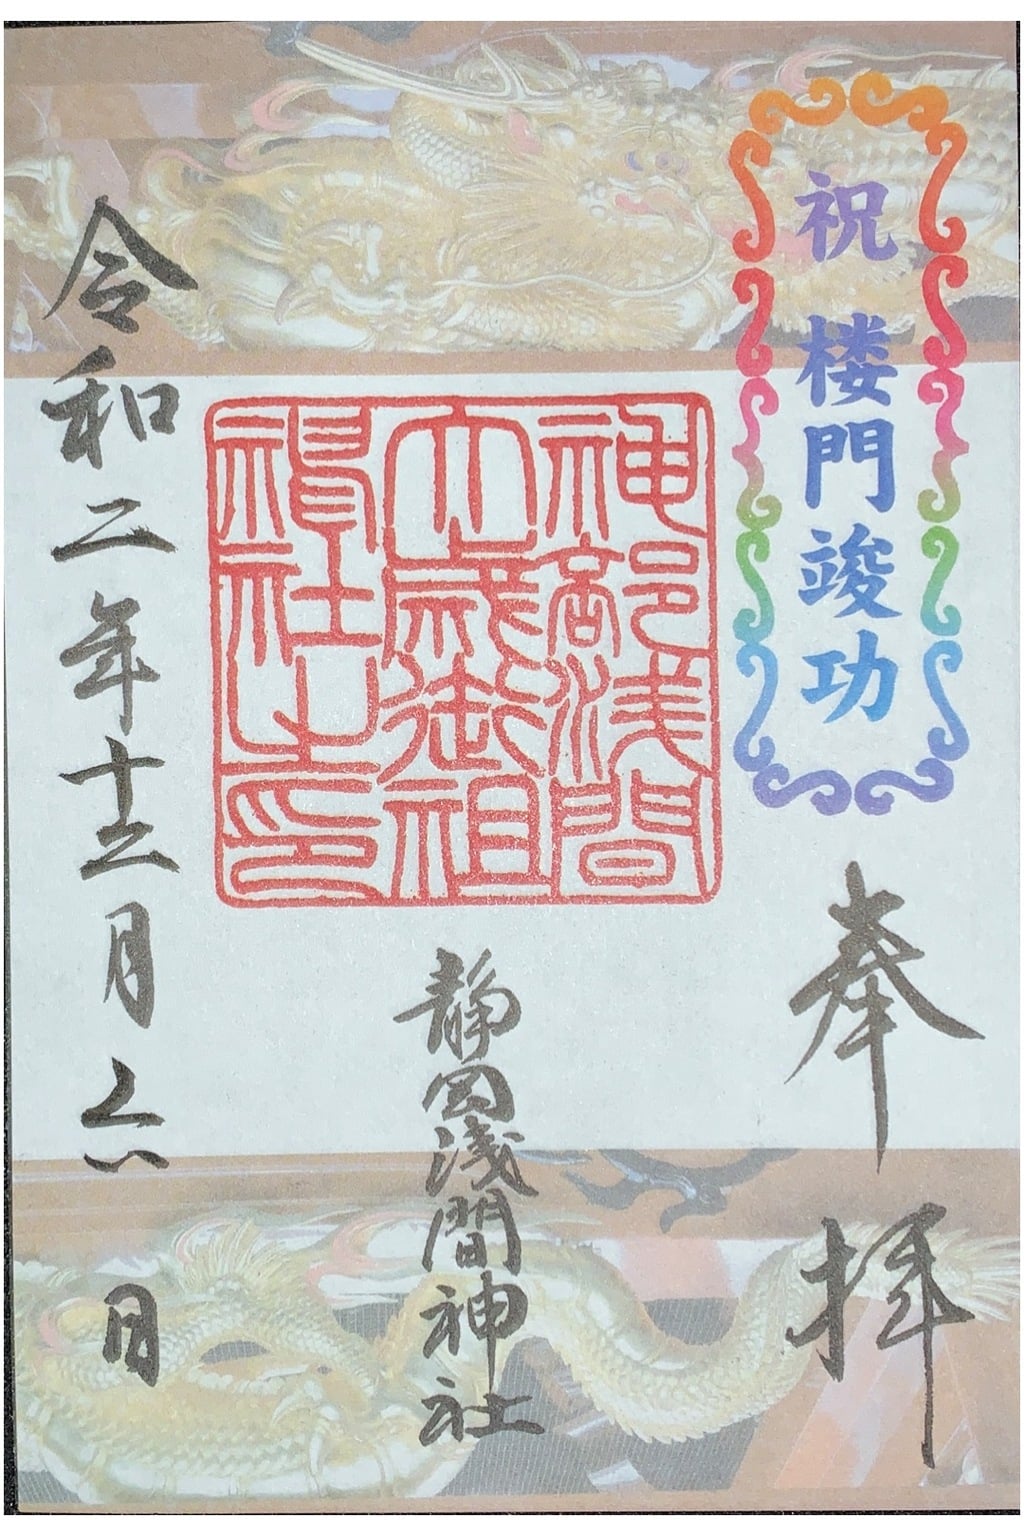 祝 楼門竣功
奉拝
神部浅間
大歳御祖
神社之印
静岡浅間神社
令和二年十二月六日